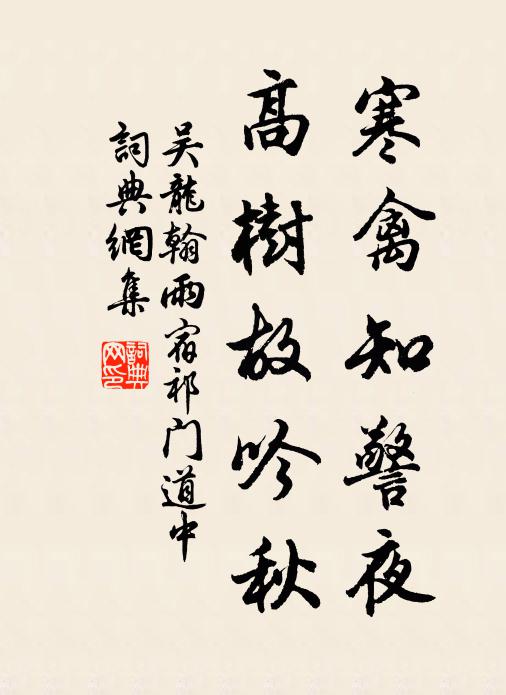 寒禽知警夜
高樹故吟秋
吴龍翰雨宿祁门道中
詞典網集
詞典网印